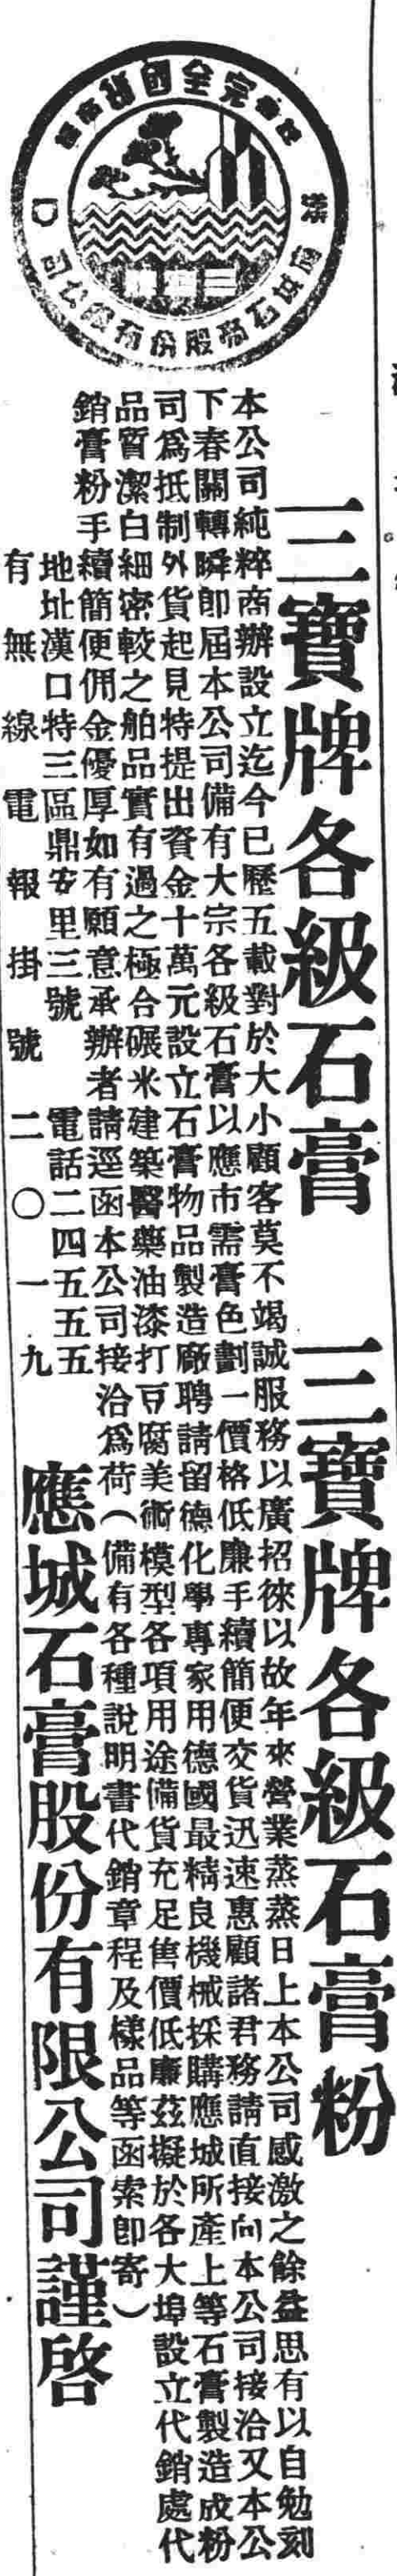 漢口
應城石膏股份有限公司
三寶牌
三寶牌各級石膏 三寶牌各級石膏粉
本公司純粹商辦設立迄今已歷五載對於大小顧客莫不竭誠服務以廣招徠以故年來營業蒸蒸日上本公司感激之餘益思有以自勉刻
下春關轉瞬卽屆本公司備有大宗各級石膏以應市需膏色劃一價格低廉手續簡便交貨迅速惠顧諸君務請直接向本公司接洽又本公
司爲抵制外貨起見特提出資金十萬元設立石膏物品製造廠聘請留德化學專家用德國最精良機械採購應城所產上等石膏製造成粉
品質潔白細密較之舶品實有過之極合碾米建築醫藥油漆打豆腐美術模型各項用途備貨充足售價低廉茲擬於各大埠設立代銷處代
銷膏粉手續簡便佣金優厚如有願意承辦者請逕函本公司接洽爲荷（備有各種說明書代銷章程及樣品等函索卽寄）
地址漢口特三區鼎安里三號 電話二四五五五
有無線電報掛號 二〇一九
應城石膏股份有限公司謹啓